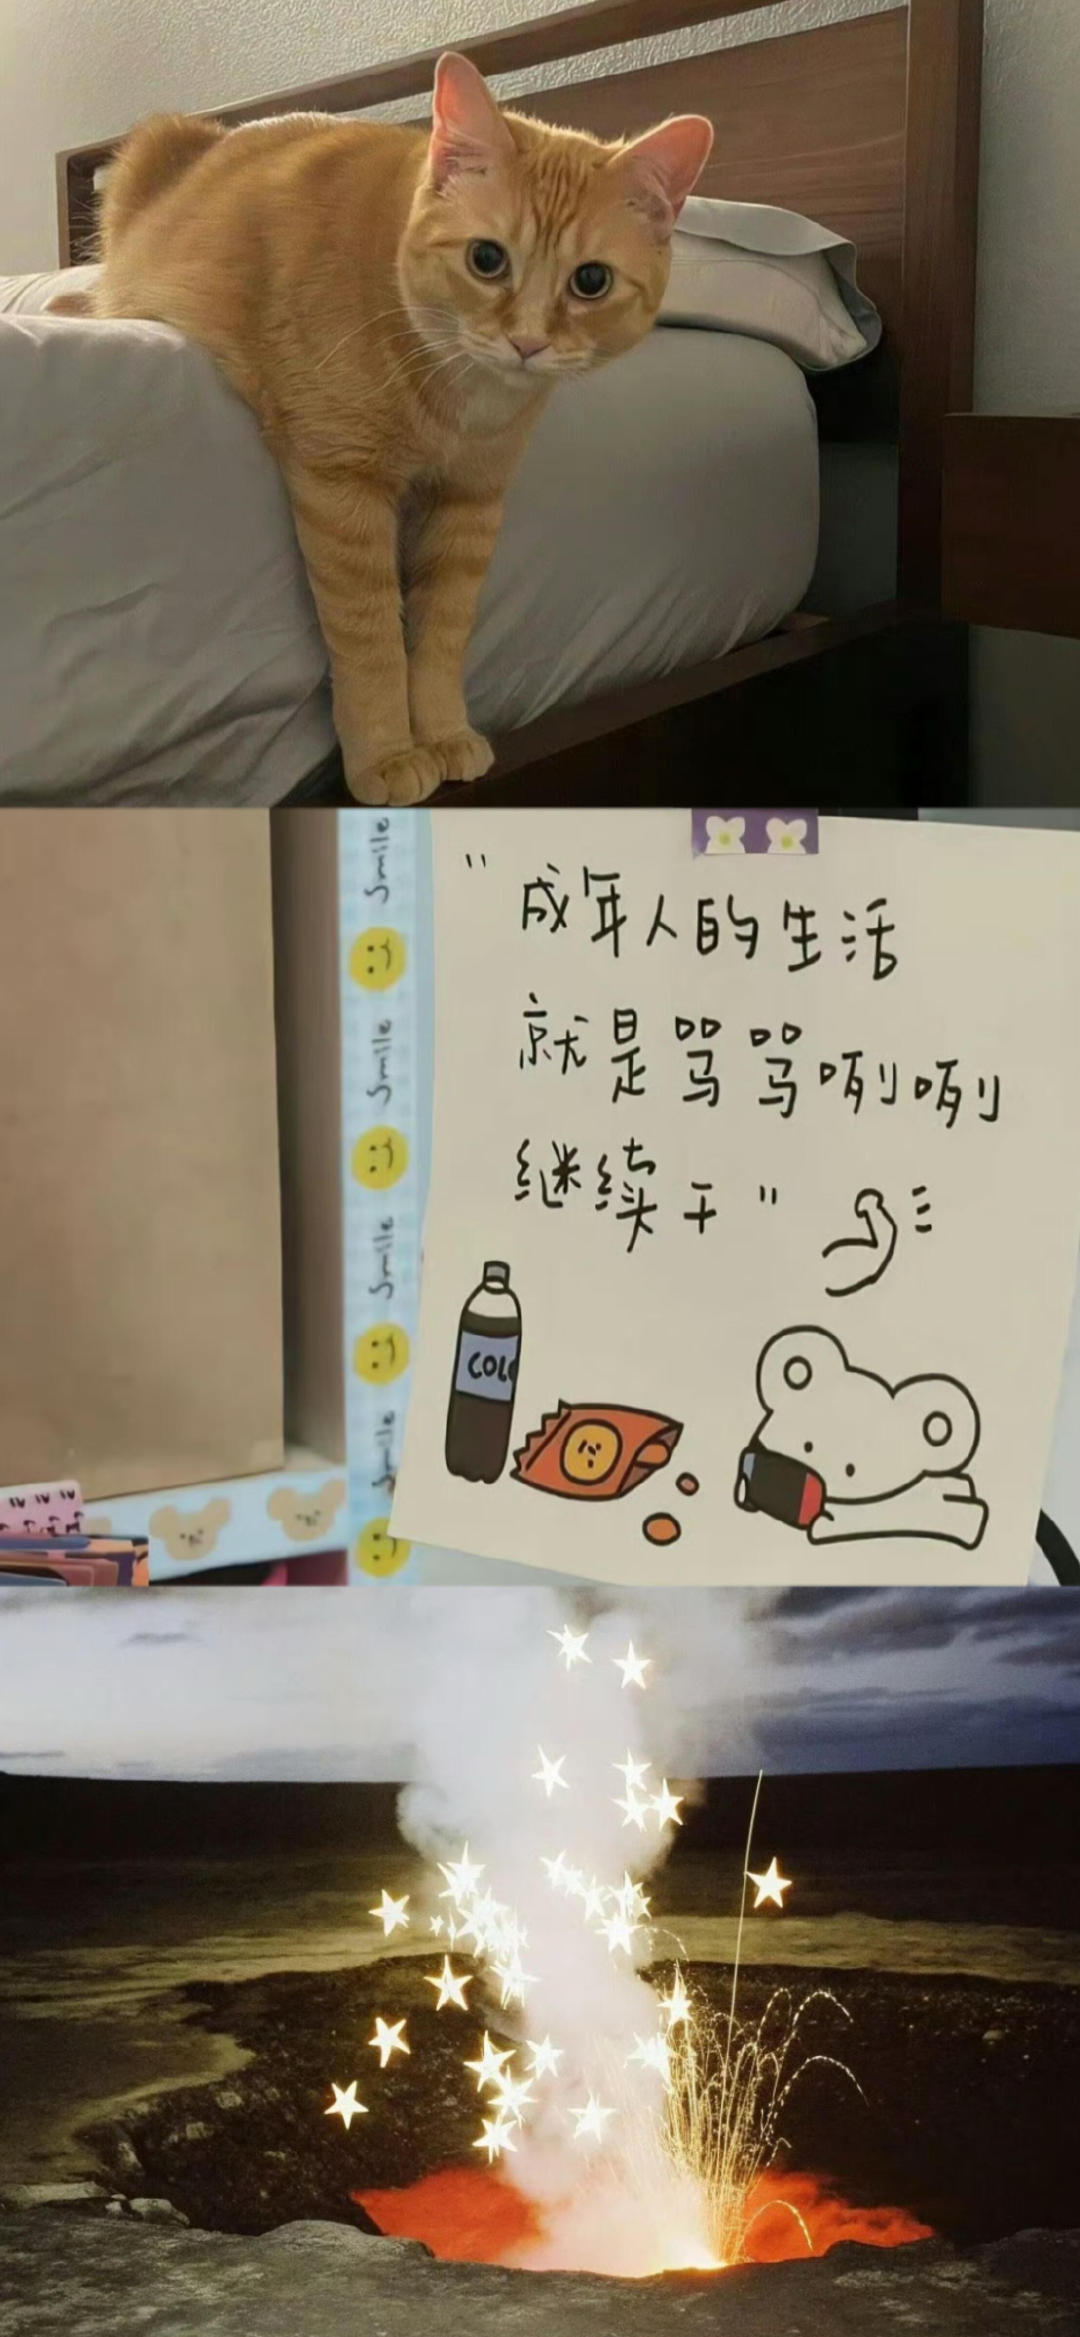 Smile
Smile
Smile
Smile
"成年人的生活
就是骂骂咧咧
继续干"
COL